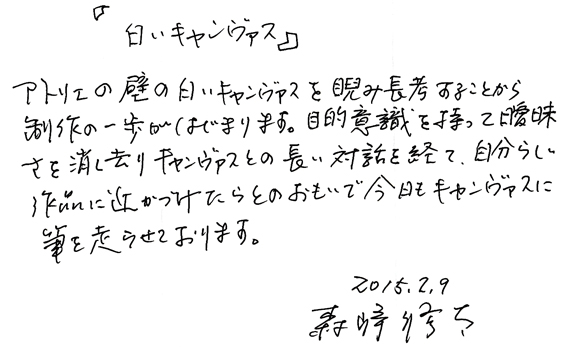 『白いキャンヴァス』
アトリエの壁の白いキャンヴァスを睨み長考することから
制作の一歩がはじまります。目的意識を持って曖昧
さを消し去りキャンヴァスとの長い対話を経て、自分らしい
作品に近かづけたらとのおもいで今日もキャンヴァスに
筆を走らせております。
2015.2.9